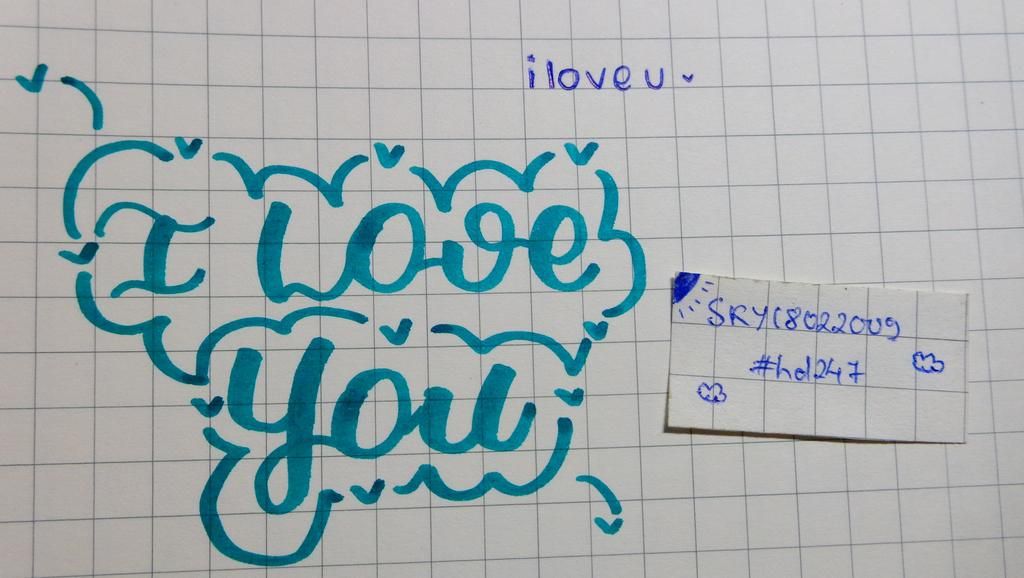 i love u
I Love
You
SKY18022009
#hd247